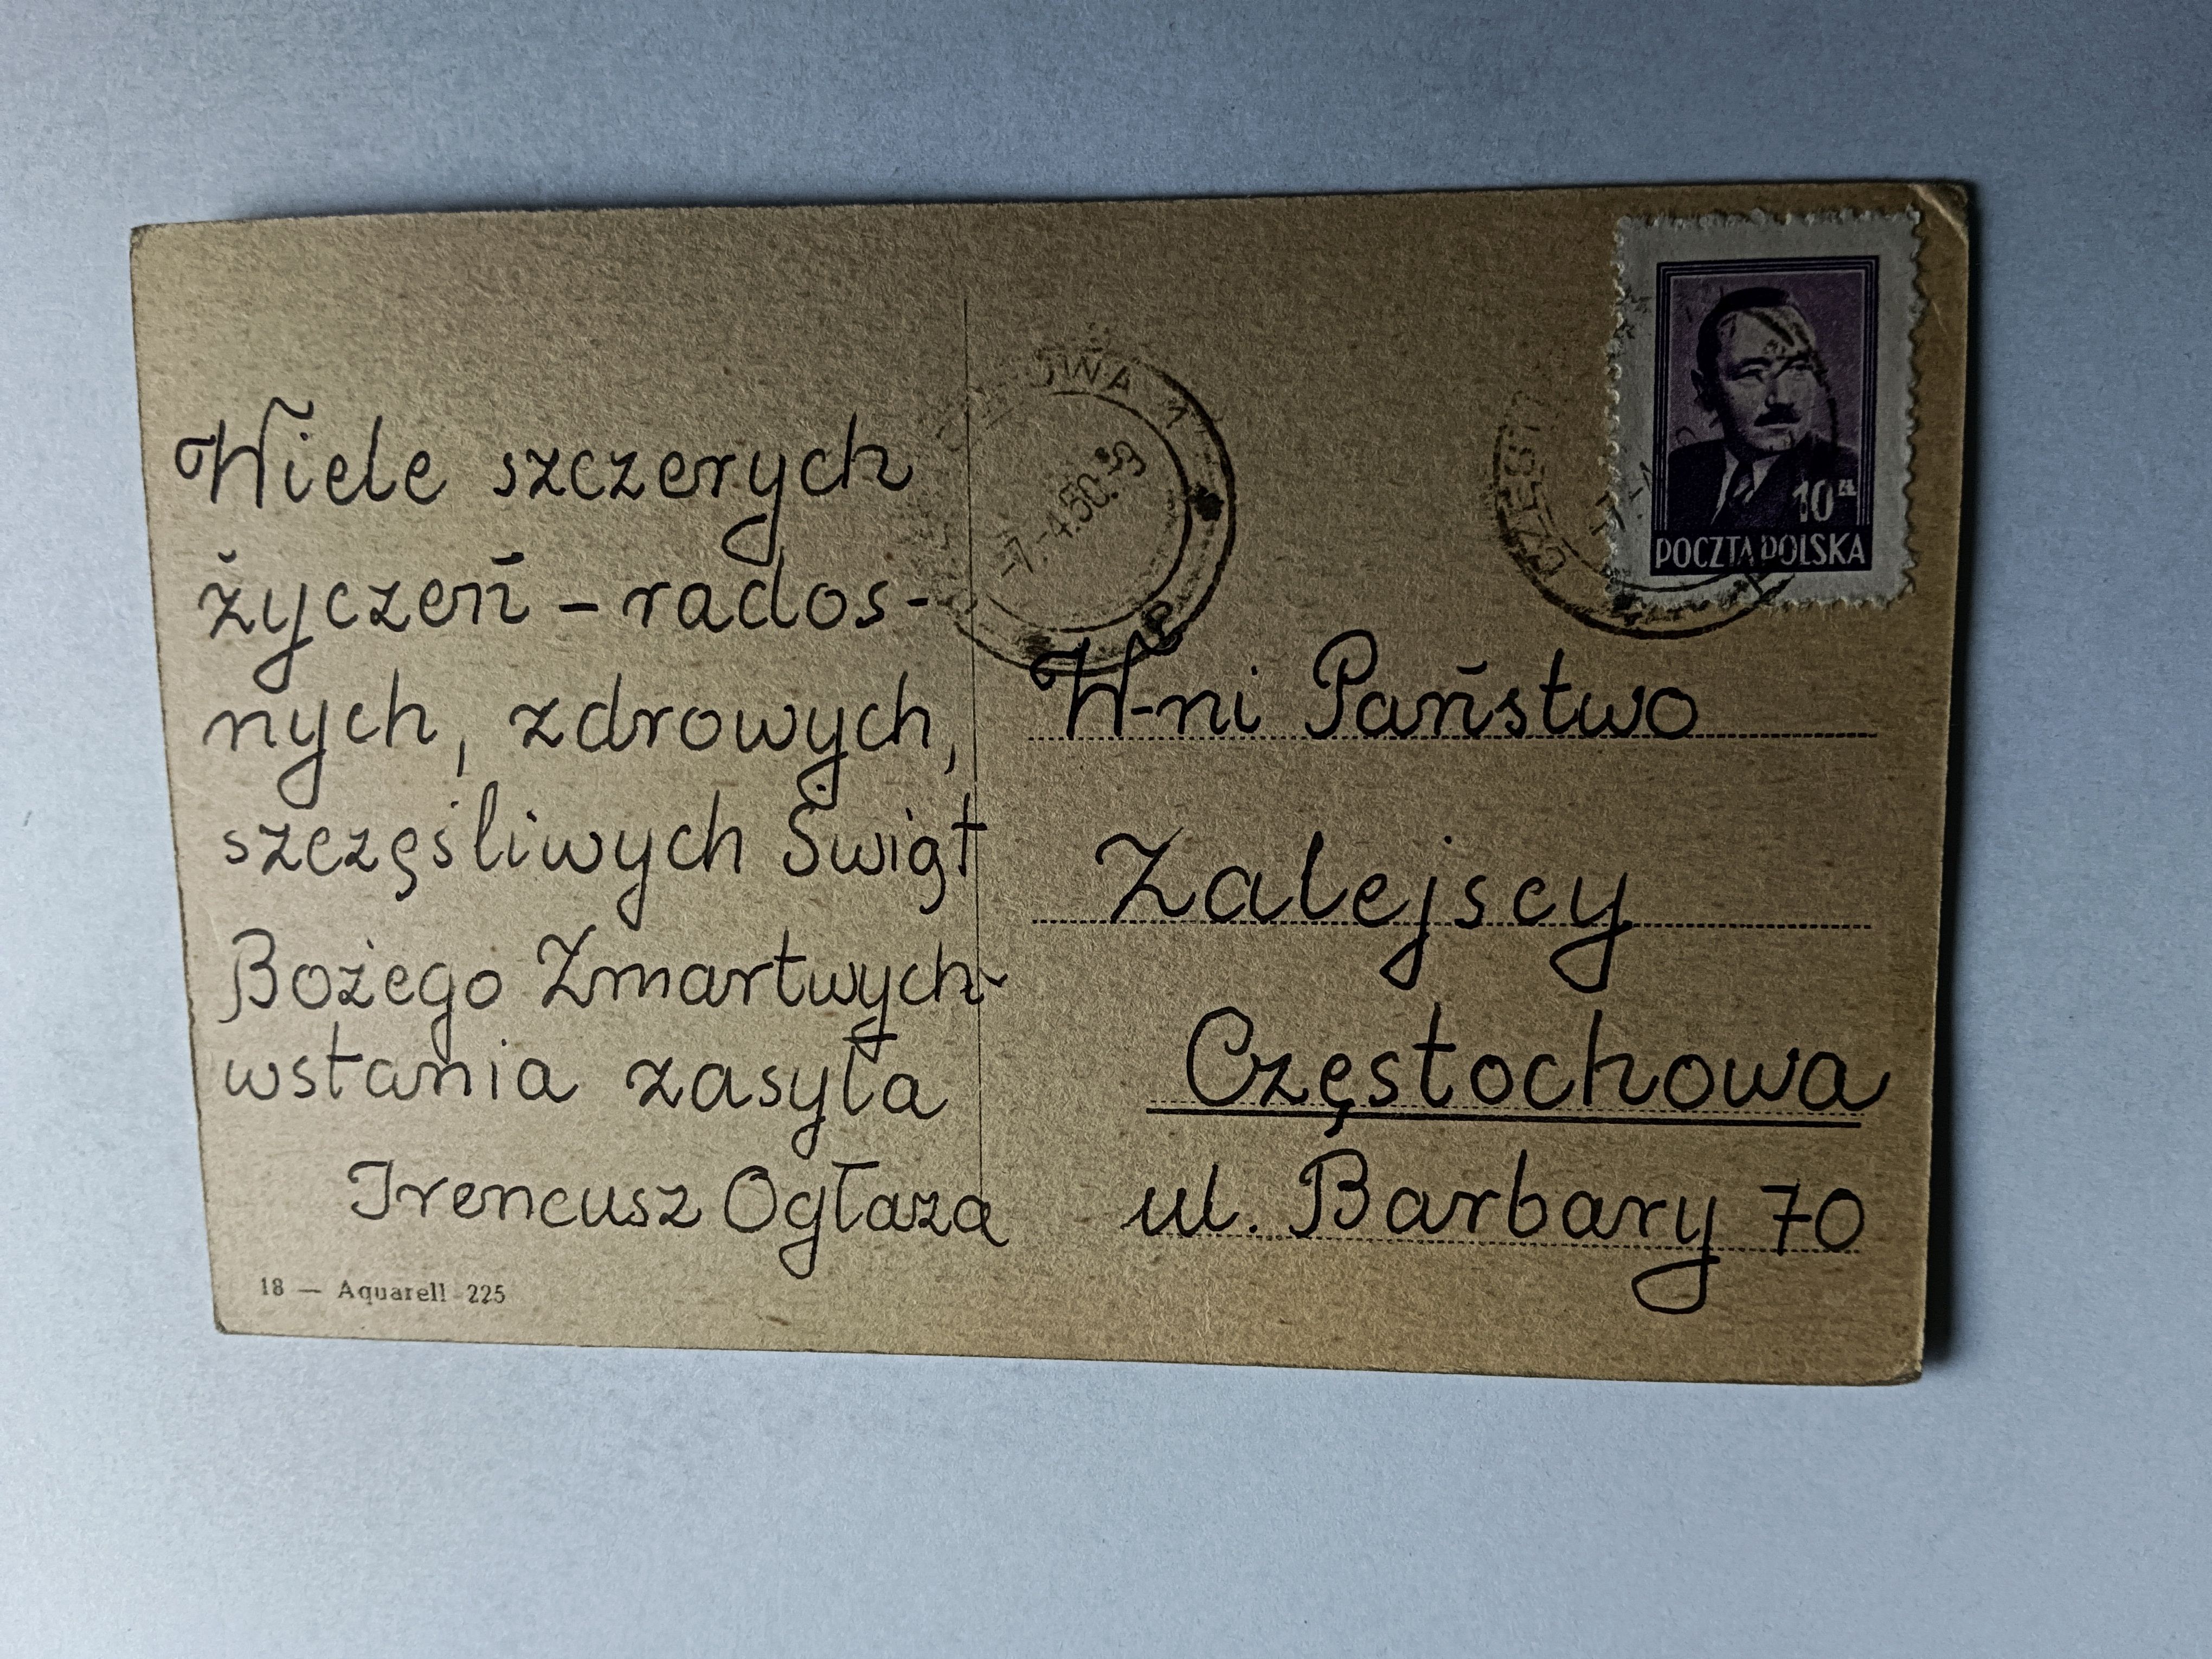 Wiele szczerych
życzeń – rados-
nych, zdrowych,
szczęśliwych Świąt
Bożego Zmartwych-
wstania zasyła
Ireneusz Ogłaza
18 — Aquarell 225
OWA 1
-7.-4.50.-19
CZĘST
10 zł
POCZTA POLSKA
W-ni Państwo
Zalejscy
Częstochowa
ul. Barbary 70